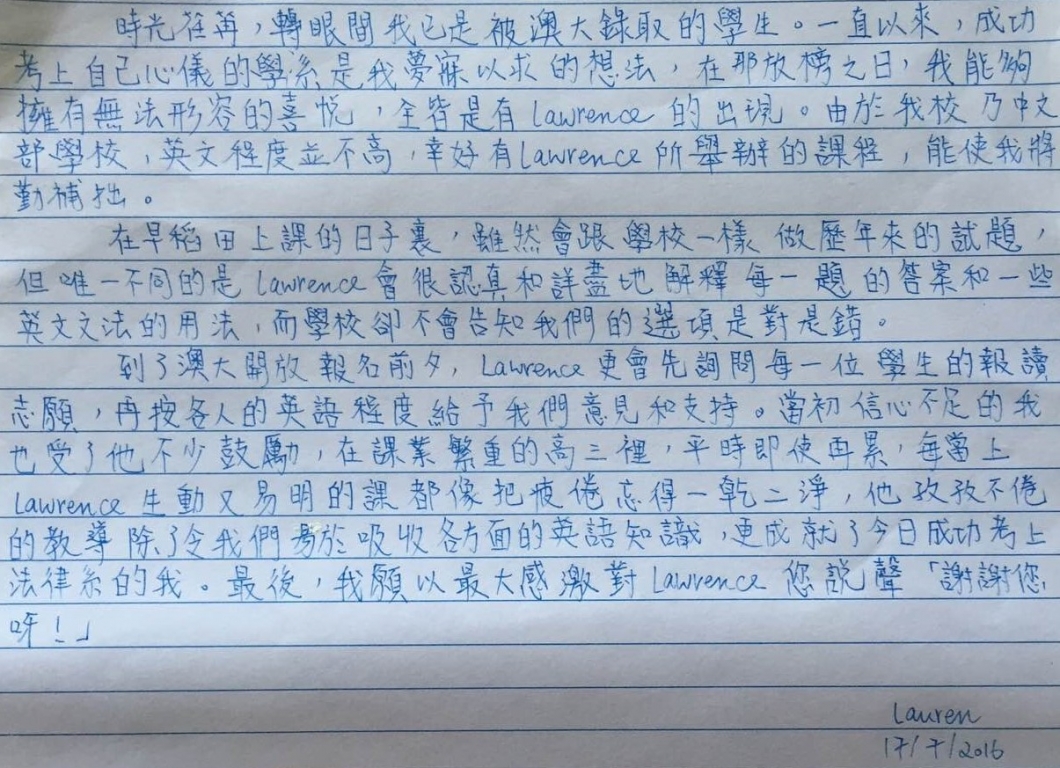 時光荏苒，轉眼間我已是被澳大錄取的學生。一直以來，成功
考上自己心儀的學系是我夢寐以求的想法，在那放榜之日，我能夠
擁有無法形容的喜悅，全皆是有Lawrence的出現。由於我校乃中文
部學校，英文程度並不高，幸好有Lawrence所舉辦的課程，能使我將
勤補拙。
在早稻田上課的日子裏，雖然會跟學校一樣做歷年來的試題，
但唯一不同的是Lawrence會很認真和詳盡地解釋每一題的答案和一些
英文文法的用法，而學校卻不會告知我們的選項是對是錯。
到了澳大開放報名前夕，Lawrence更會先詢問每一位學生的報讀
志願，再按各人的英語程度給予我們意見和支持。當初信心不足的我
也受了他不少鼓勵，在課業繁重的高三裡，平時即使再累，每當上
Lawrence生動又易明的課都像把疲倦忘得一乾二淨，他孜孜不倦
的教導除了令我們易於吸收各方面的英語知識，更成就了今日成功考上
法律系的我。最後，我願以最大感激對Lawrence您説聲「謝謝您
呀！」
Lauren
17/7/2016